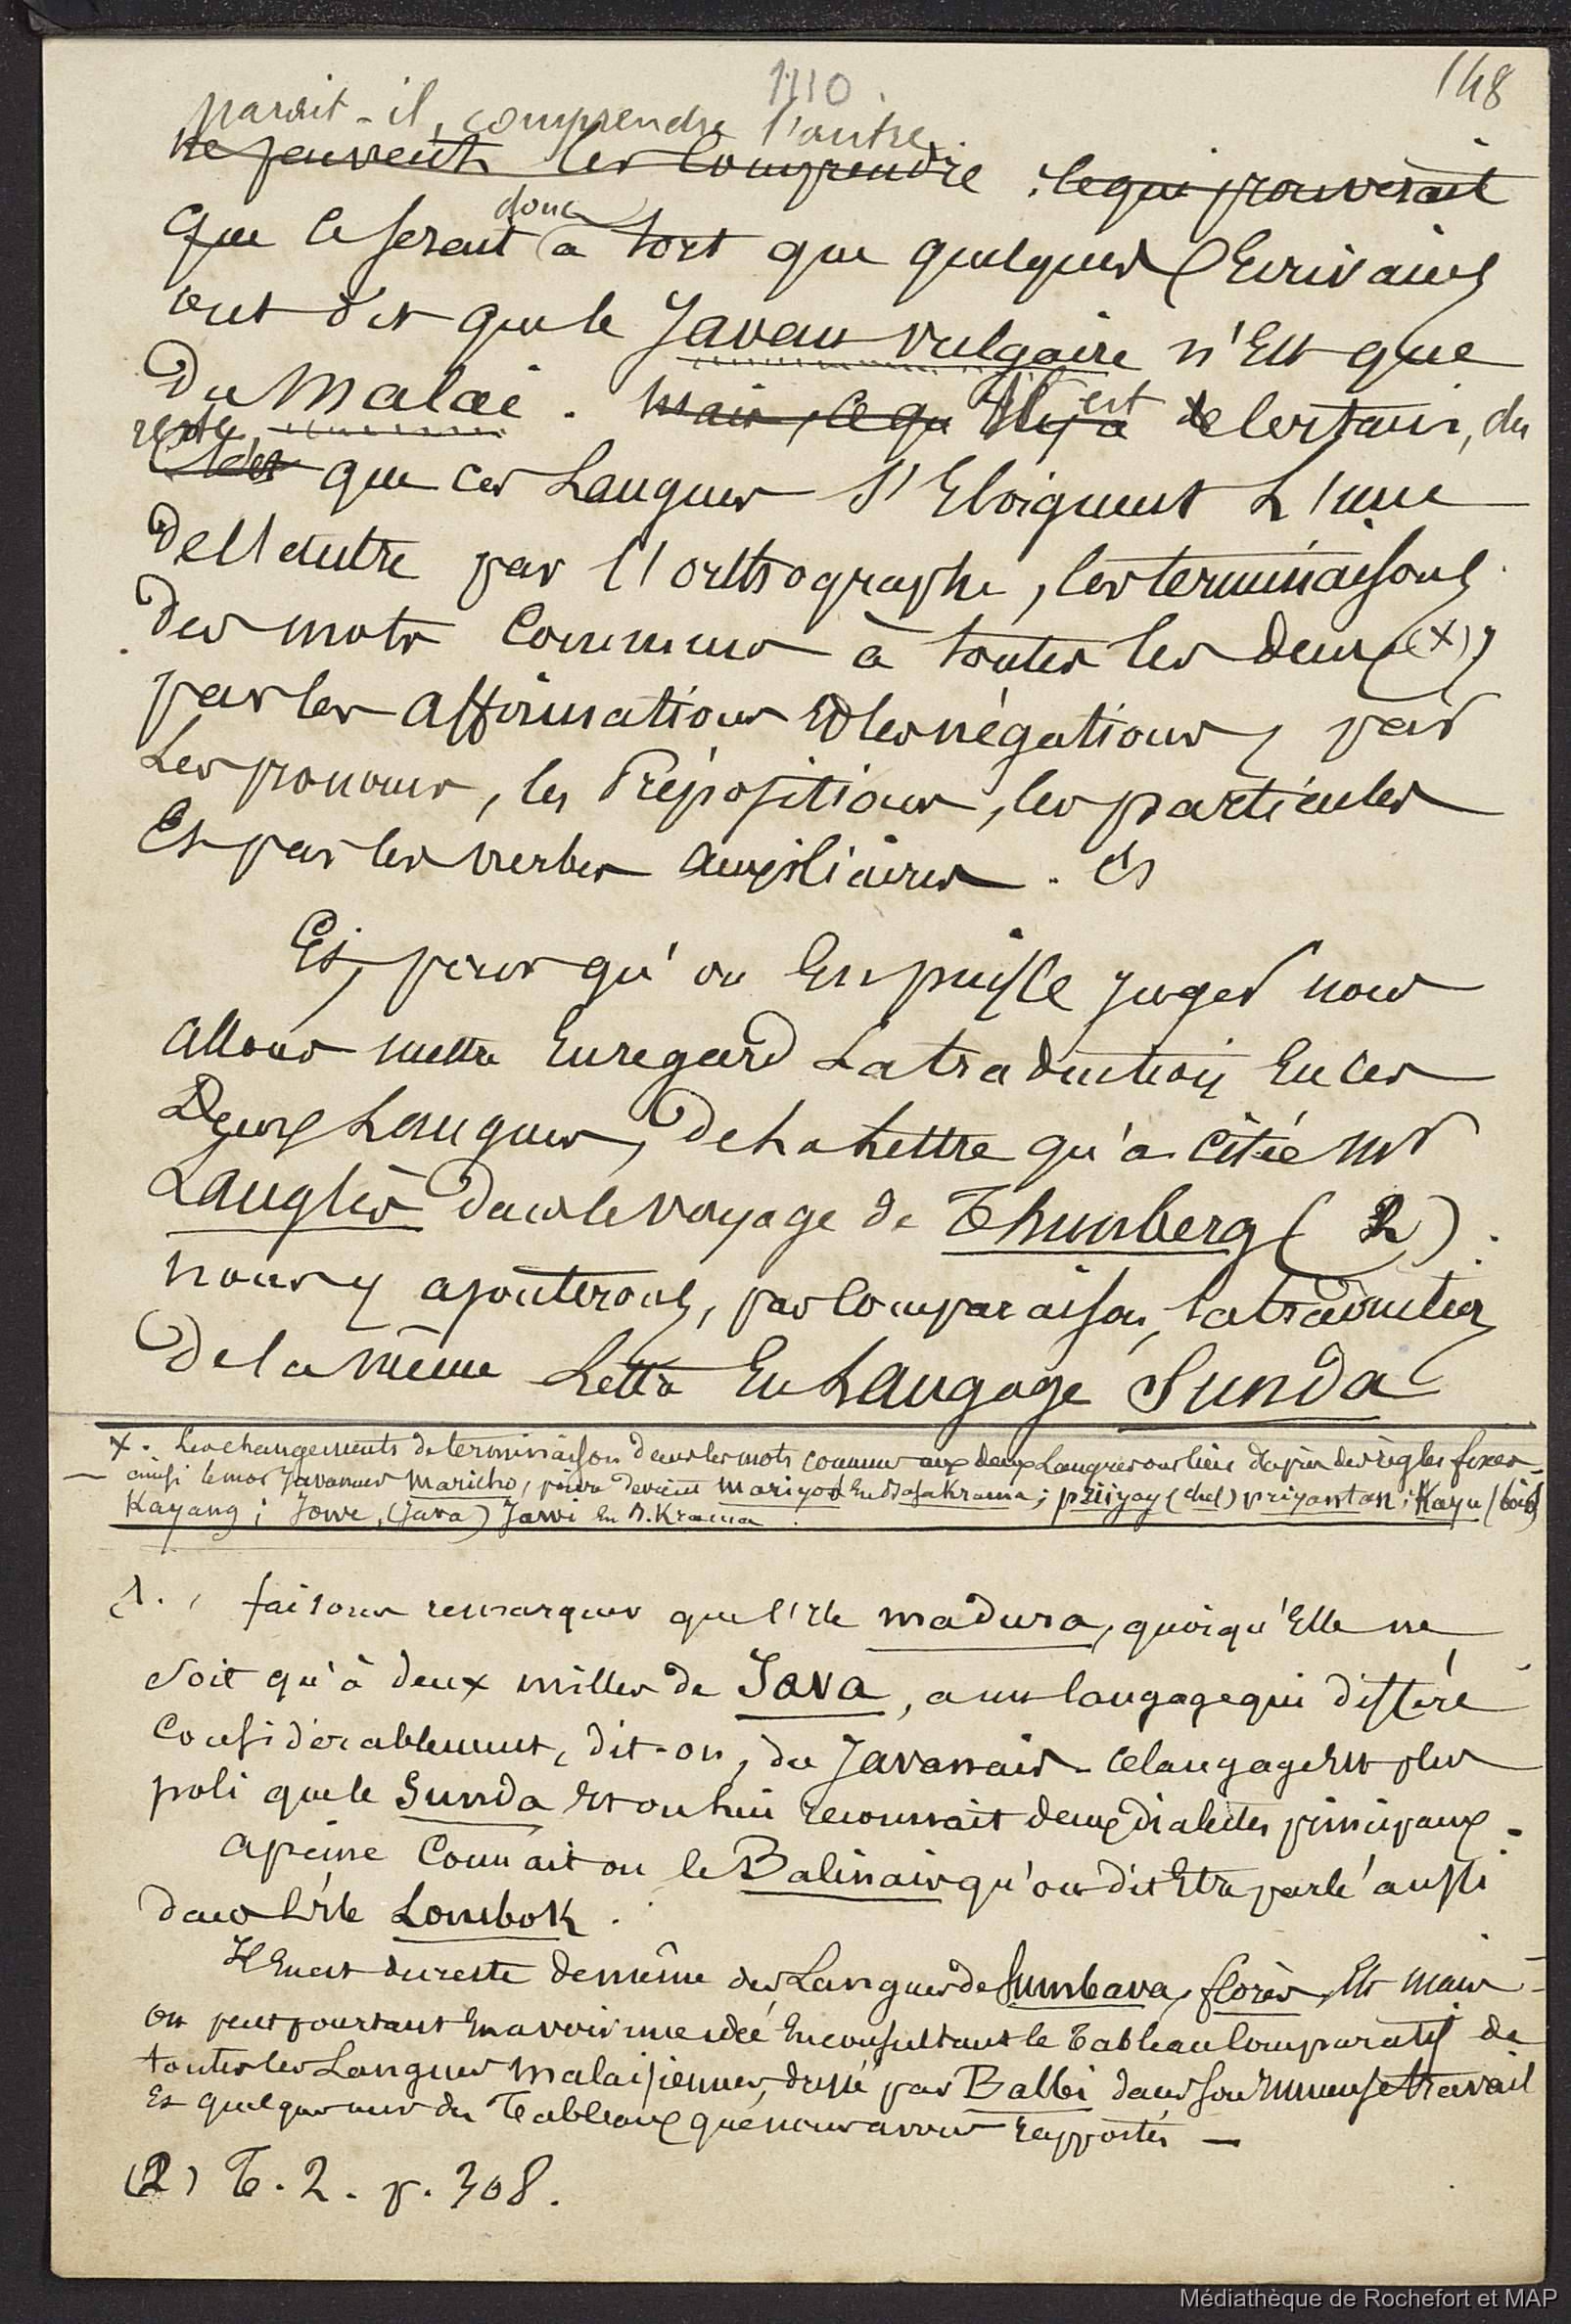 148
1110.
parait-il, comprendre l'autre.
ne peuvent les comprendre. ce qui prouverait
donc
que ce serait à tort que quelques Ecrivains
ont dit que le Javan vulgaire n'Est que
du Malai. Mais, ce qu Il y a est de certain, du
reste,
c'est que ces Langues s'Eloignent L'une
de l'autre par l'orthographe, les terminaisons
des mots communs à toutes les deux (x),
par les affirmations Et les négations, par
Les pronoms, les Prépositions, les particules
Et par les verbes auxiliaires.
Et, pour qu'on En puisse juger nous
allons mettre En regard La traduction En ces
Deux Langues, de La Lettre qu'a citée Mr
Langlès dans le voyage de Thunberg (2).
nous y ajouterons, par Comparaison, la traduction
de la même Lettre En Langage Sunda
x. Les changements de terminaison dans les mots communs aux deux Langues ont lieu d'après des règles fixes
ainsi le mot Javanais Maricho, poivre devient Mariyos En Basakrama; priiyay (chef) priyantan; Kayu (bois)
Kayang; Jowe, (Java) Jawi En B. Krama.
1. faisons remarquer que l'Ile Madura, quoiqu'Elle ne
soit qu'à deux milles de Java, a un langage qui diffère
Considérablement, dit-on, du Javanais. Ce langage Est plus
poli que le Sunda Et on lui reconnait deux dialectes principaux.
A peine Connait on le Balinais qu'on dit Etre parlé aussi
dans l'Ile Lombok.
Il En est du reste de même des Langues de Sumbava, florès, Etc mais
on peut pourtant En avoir une idée En consultant le Tableau Comparatif de
toutes les Langues malaisiennes, dressé par Balbi dans son Immense travail
Et quelques uns des Tableaux que nous avons rapportés —
(2) T. 2. p. 308.
Médiathèque de Rochefort et MAP